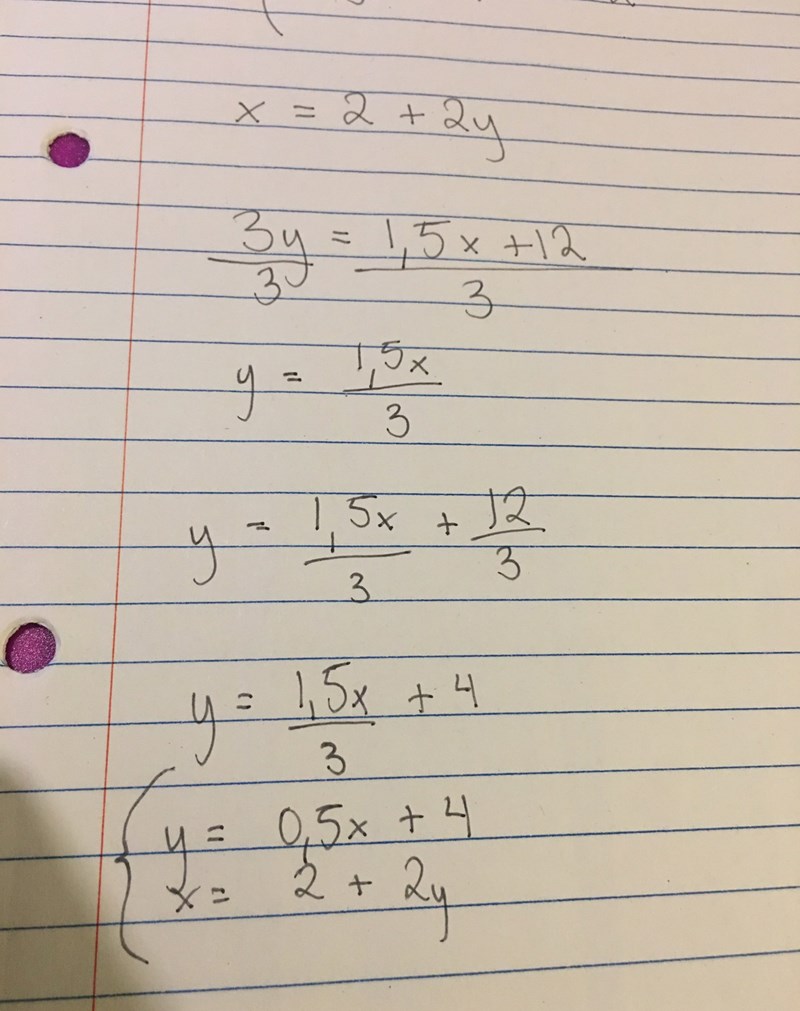 x = 2 + 2y
3y/3 = 1,5x +12/3
y = 1,5x/3
y = 1,5x/3 + 12/3
y = 1,5x/3 + 4
{ y = 0,5x + 4
x = 2 + 2y